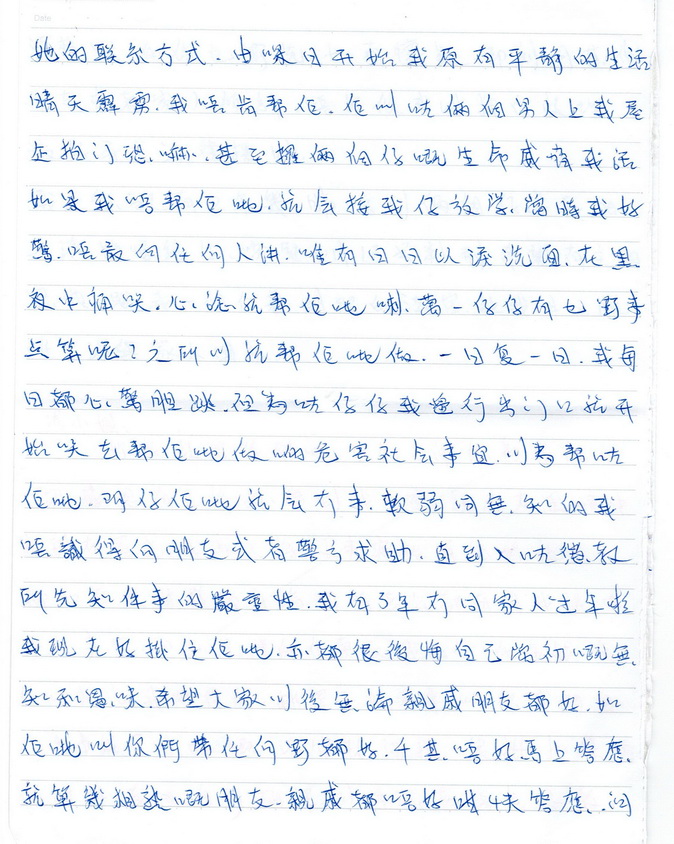 她的联系方式.由嗰日开始我原有平静的生活
晴天霹雳.我唔肯帮佢.佢叫咗俩個男人上我屋
企拍门恐嚇、甚至攞俩個仔嘅生命威胁我話
如果我唔帮佢哋.就会接我仔放学.當時我好
驚.唔敢向任何人讲.唯有日日以泪洗面.在黑
夜中痛哭.心諗就帮佢哋喇.萬一仔仔有乜野事
点算呢?之所以就帮佢哋做.一日复一日.我每
日都心驚胆跳.但为咗仔仔我
始 去帮佢哋做啲危害社会事宜.以為帮咗
佢哋.阿仔佢哋就会冇事.軟弱同無知的我
唔識得向朋友或者警方求助.直到入咗懲教
所先知件事的嚴重性.我有3年冇同家人过年啦
我现在好掛住佢哋.亦都很後悔自己當初嘅無
知和愚昧.希望大家以後無論親戚朋友都好.如
佢哋叫你們带任何野都好.千其唔好馬上答應.
就算幾相熟嘅朋友.親戚都唔好 答應.